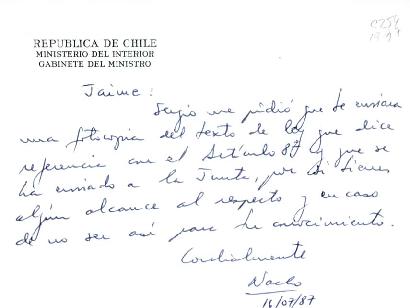 REPUBLICA DE CHILE
MINISTERIO DEL INTERIOR
GABINETE DEL MINISTRO
Jaime:
Sergio me pidió que te enviara
una fotocopia del texto de ley que dice
referencia con el Artículo 8º y que se
ha enviado a la Junta, por si tienes
algún alcance al respecto y en caso
de no ser así para tu conocimiento.
Cordialmente
Nacho
16/07/87